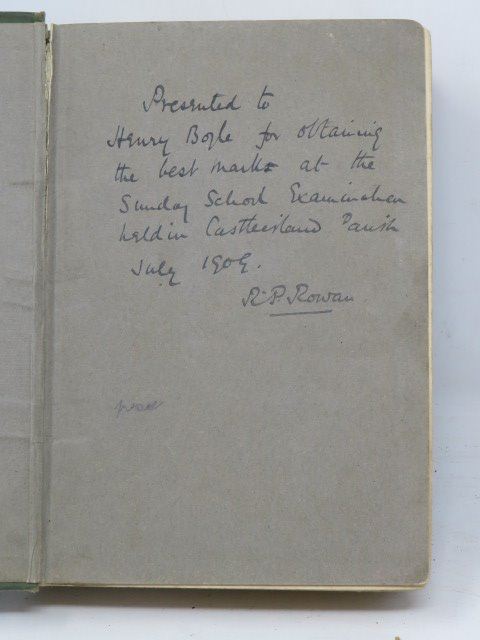 Presented to
Henry Boyle for obtaining
the best marks at the
Sunday School Examination
held in Castleisland Parish
July 1909.
R.P. Rowan